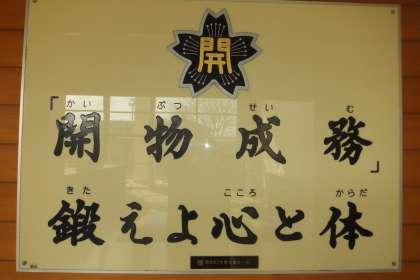 開
かい ぶつ せい む
「開物成務」
きた こころ からだ
鍛えよ心と体